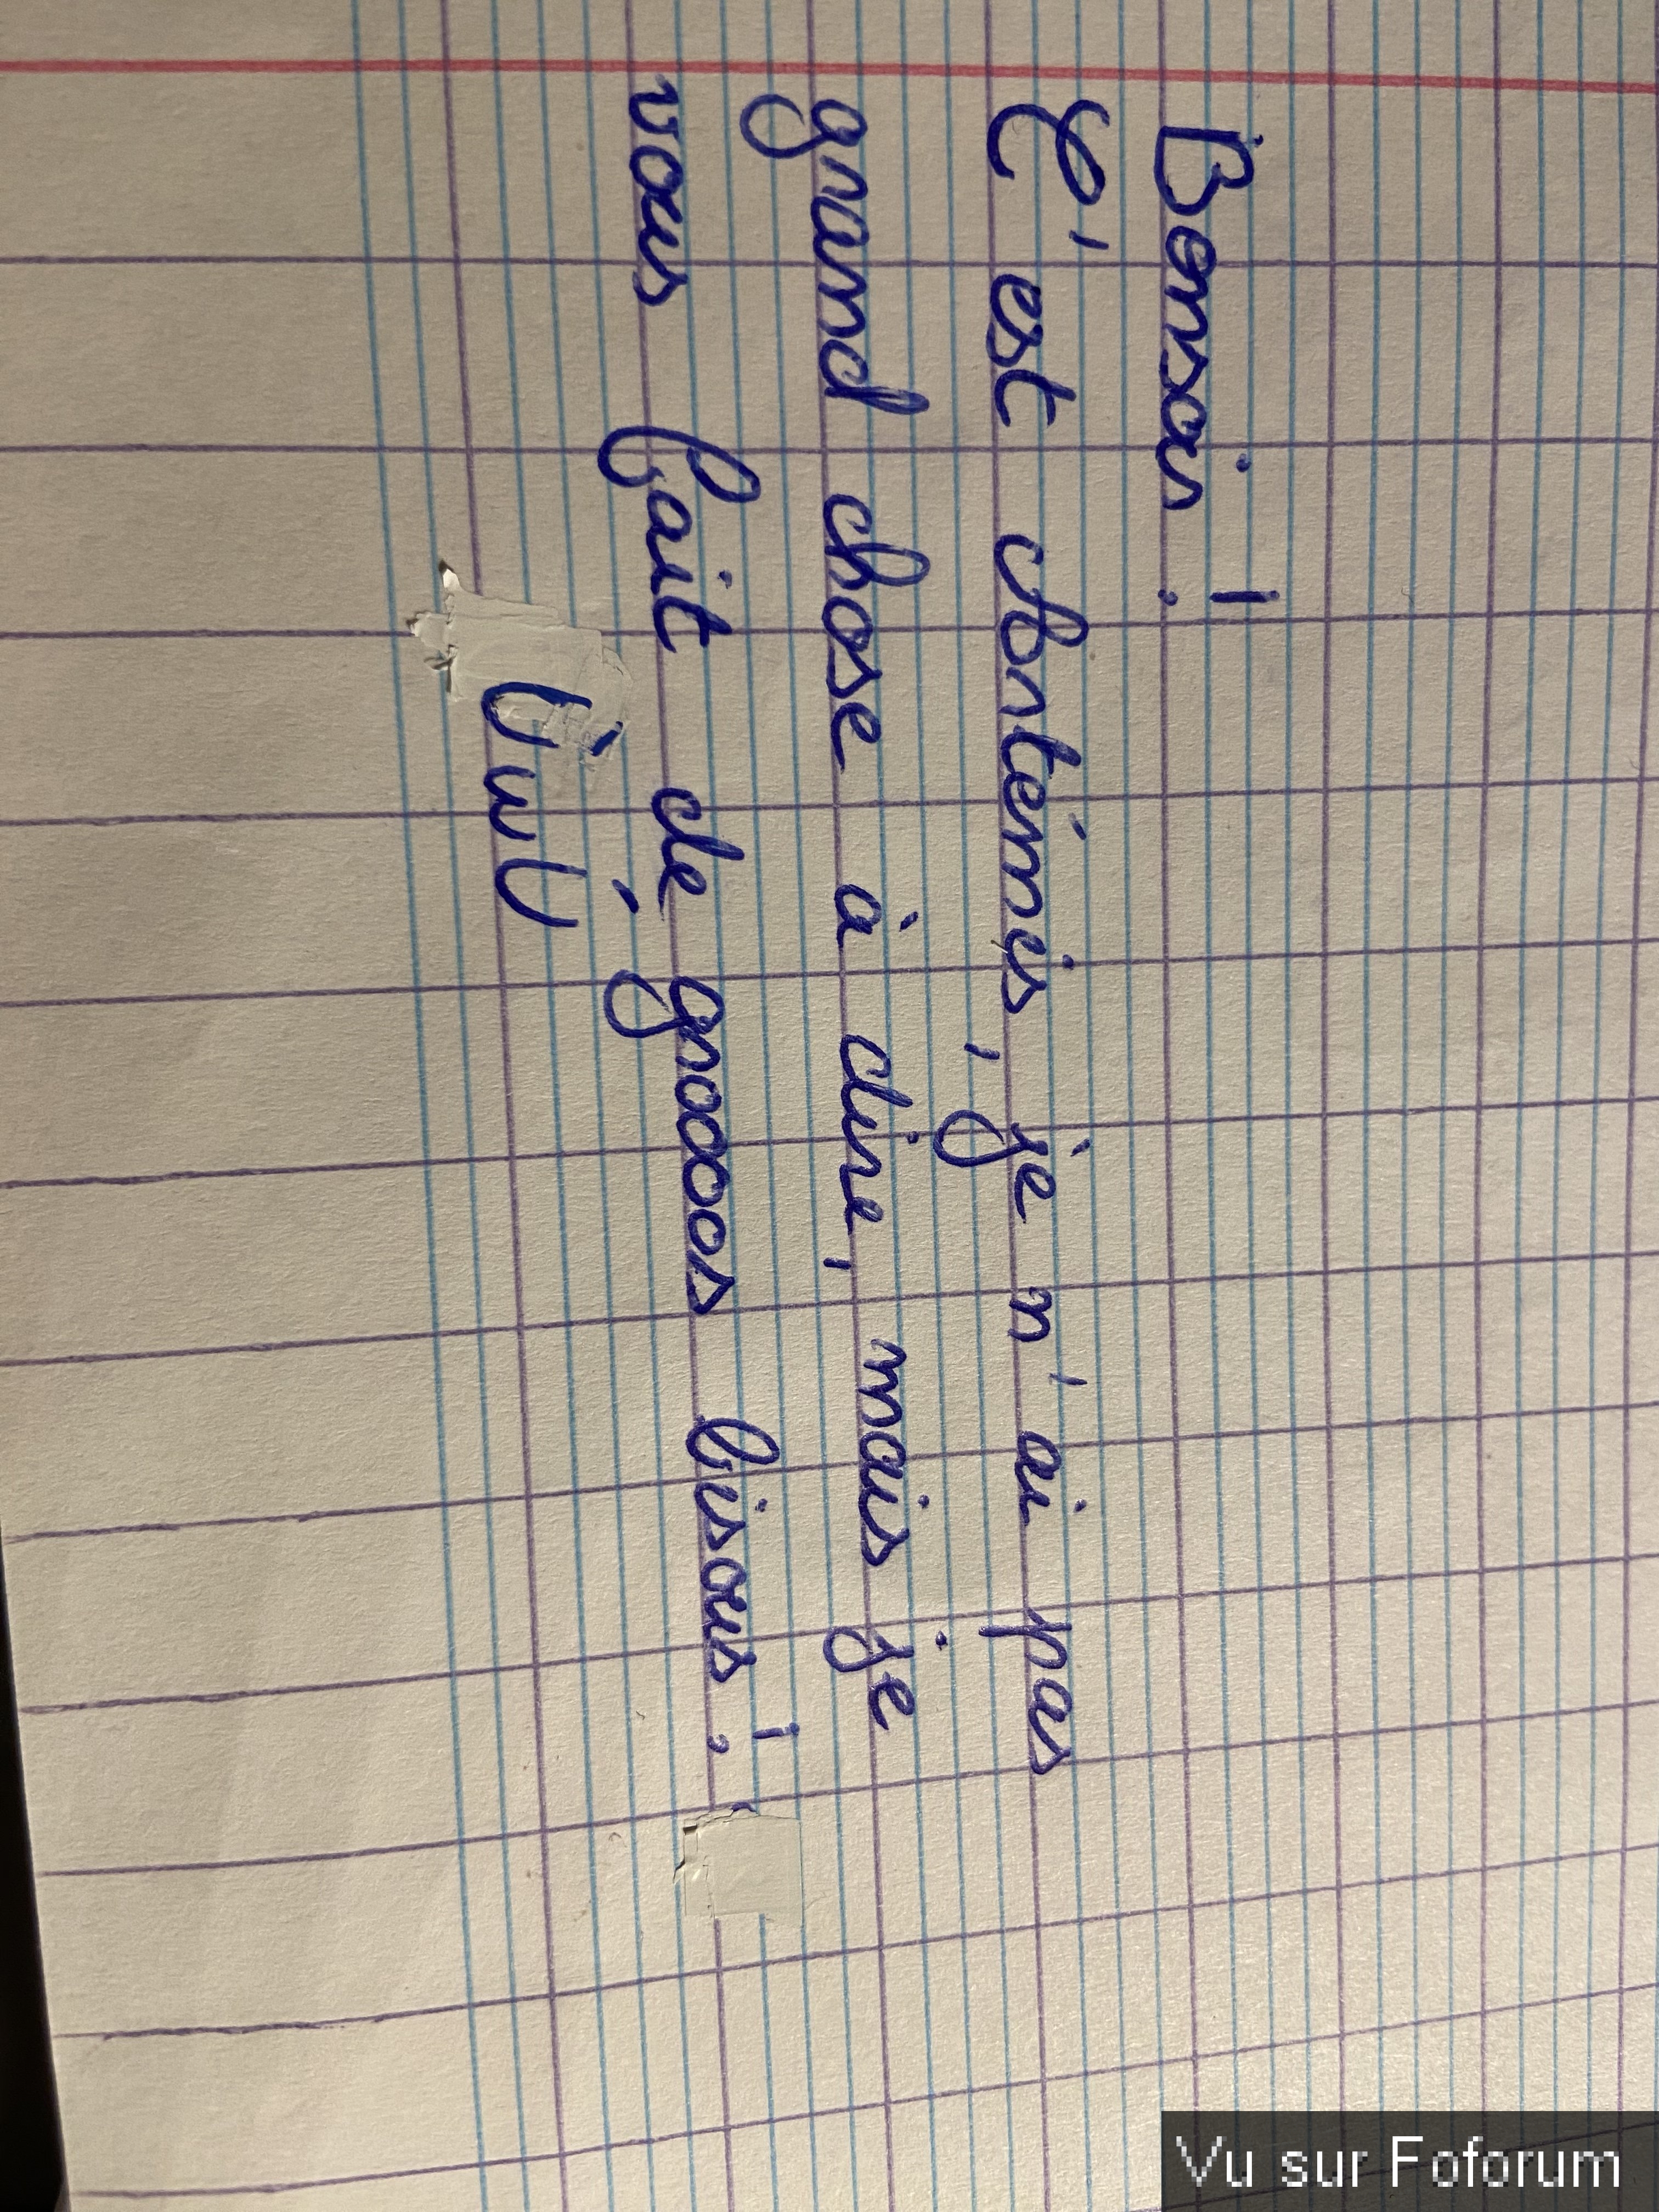 Bonsoir !
C'est Artémis, je n'ai pas
grand chose à dire, mais je
vous fait de groooos bisous !
ÙwÚ
Vu sur Foforum